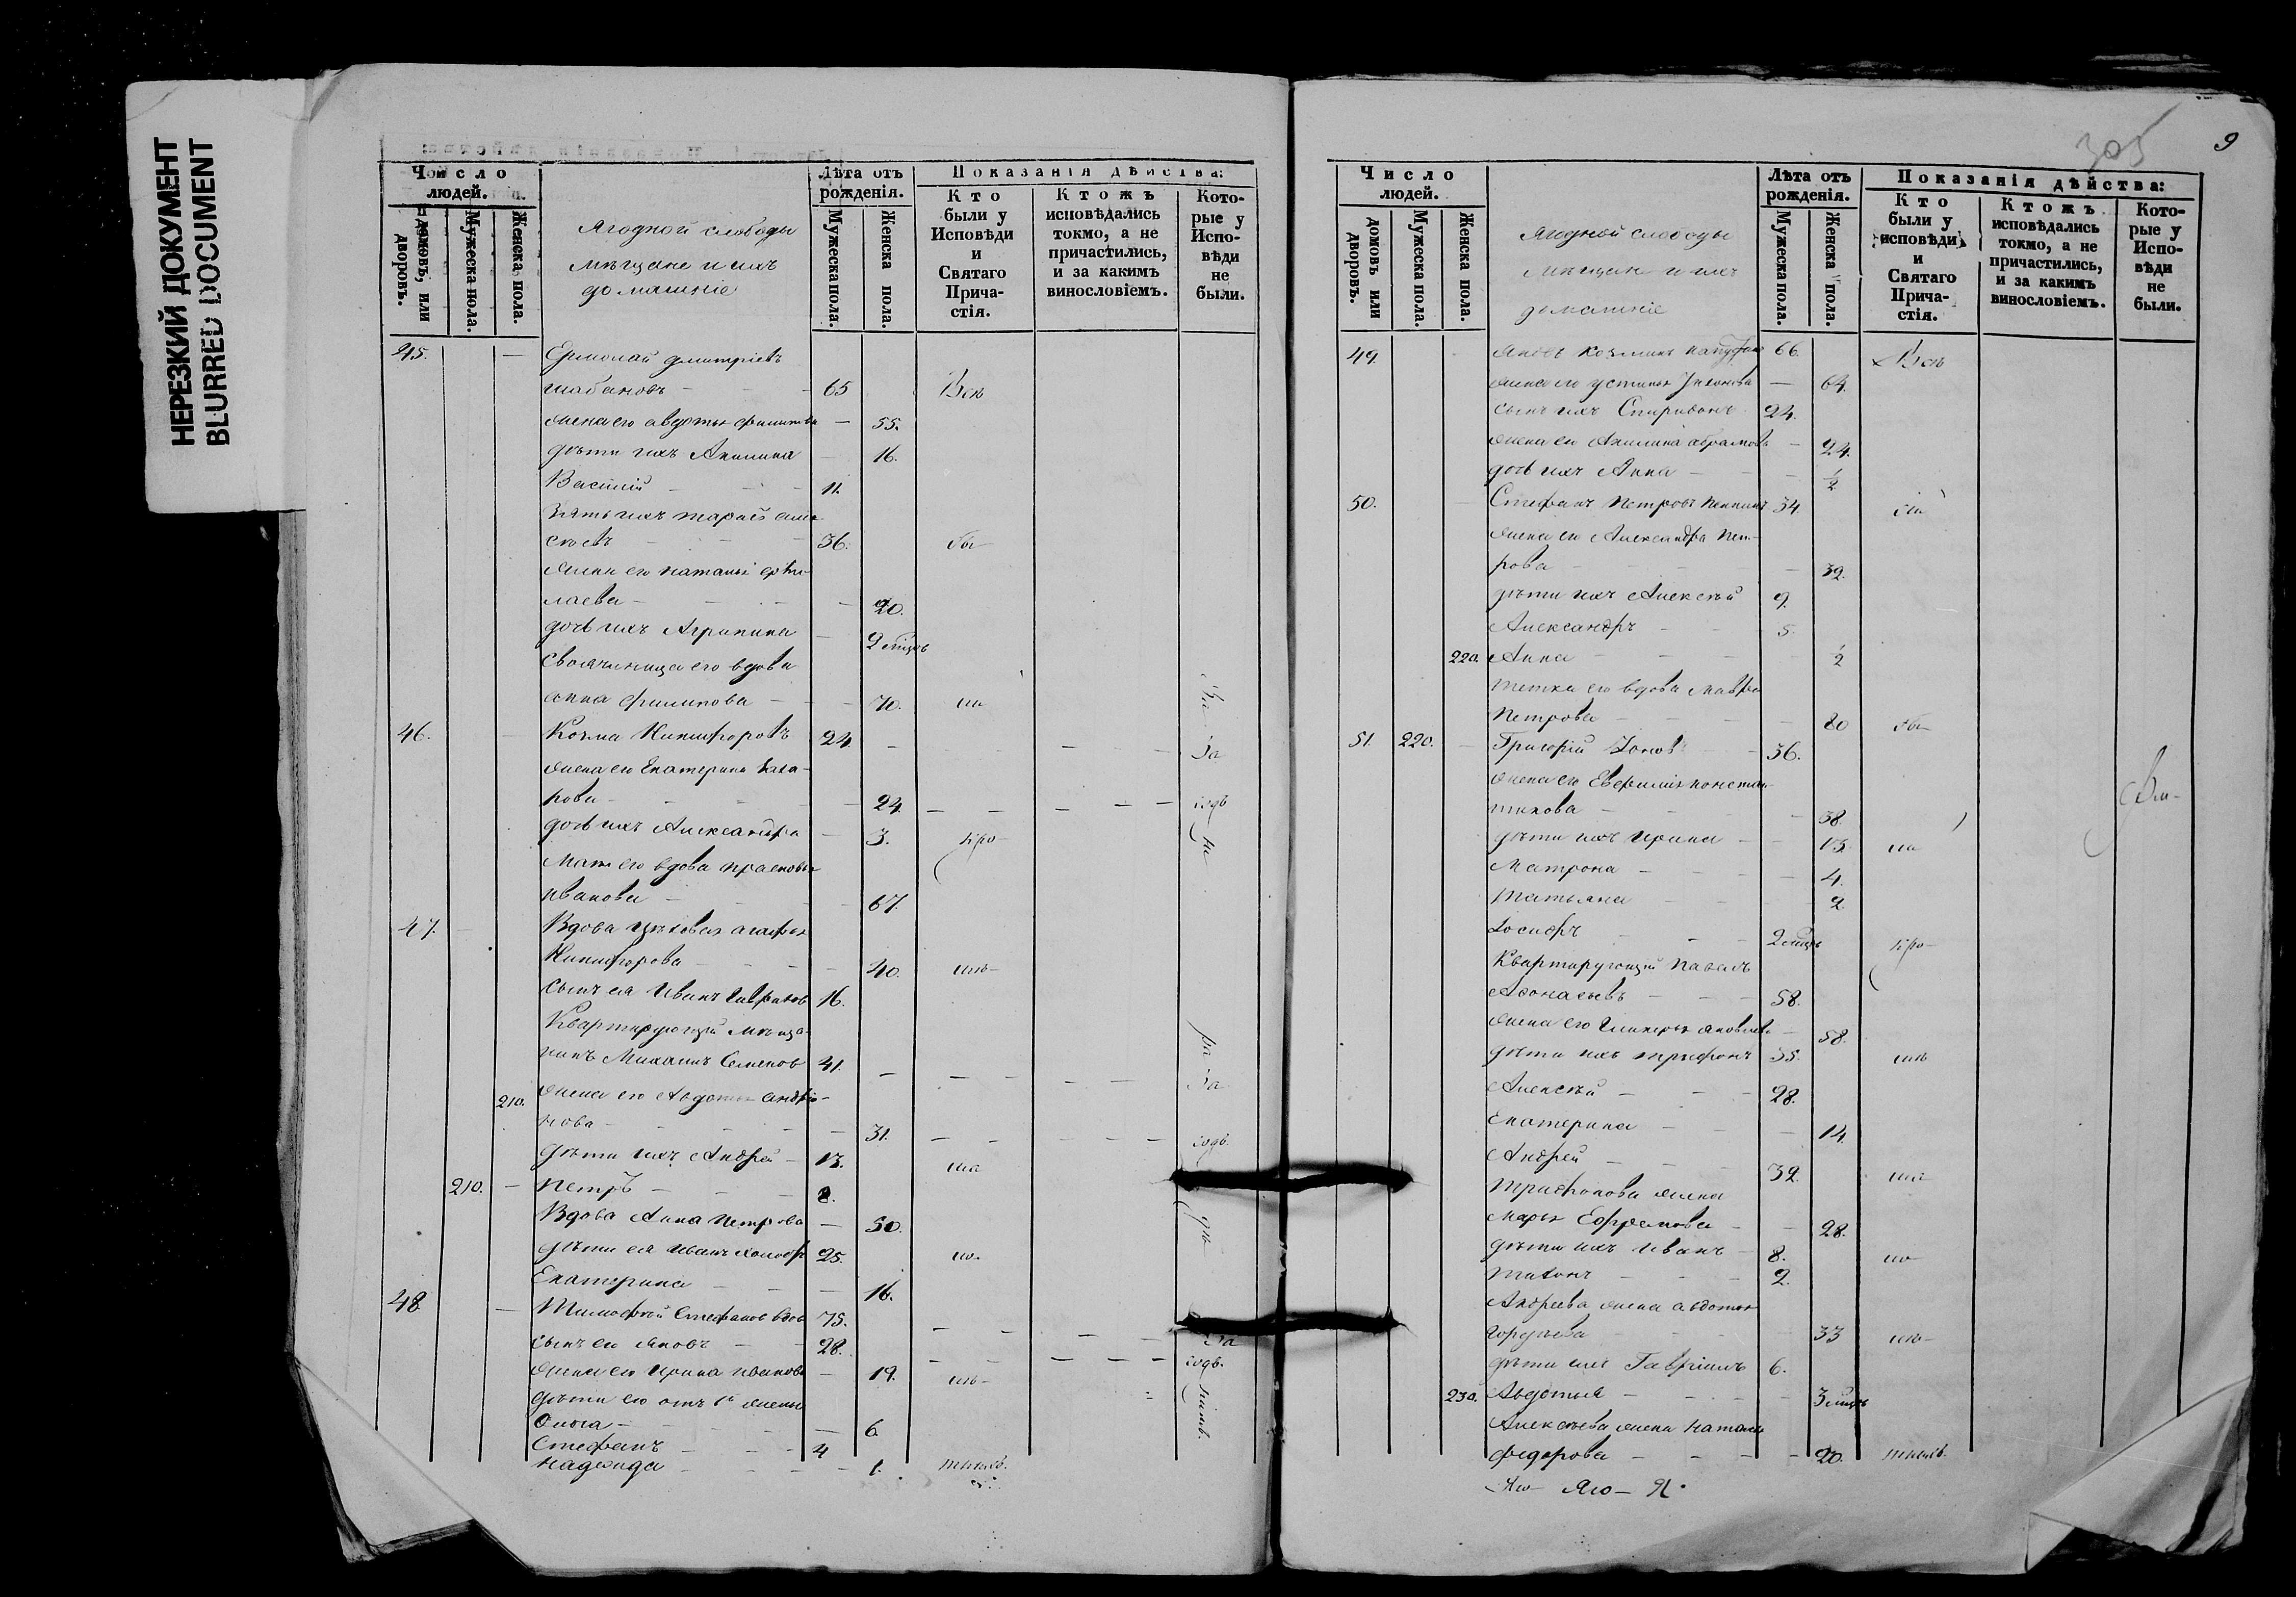 НЕРЕЗКИЙ ДОКУМЕНТ
BLURRED DOCUMENT
Число людей.
домовъ, или дворовъ.
Мужеска пола.
Женска пола.
Ягодной слободы
мѣщане и ихъ
домашніе
Лѣта отъ рожденія.
Мужеска пола.
Женска пола.
Показанія дѣйства:
Кто были у Исповѣди и Святаго Причастія.
Ктожъ исповѣдались токмо, а не причастились, и за какимъ винословіемъ.
Которые у Исповѣди не были.
45. Ермолай Дмитріевъ
Шабановъ 65 Всѣ
жена его Авдотья Филипова 55.
дѣти ихъ Акилина 16.
Василій 11.
Зять ихъ
36. бы
жена его Наталья Ермо-
лаева 20.
дочь ихъ Агрипина 2 мѣсцъ
Свояченица его вдова
Анна Филипова 70. ли За
46. Козма Никифоровъ 24. За
жена его Екатерина Заха-
рова 24. содѣ
дочь ихъ Александра 3. про
Мать его вдова Прасковья
Иванова 67.
47. Вдова цѣховая Агафья
Никифорова 40.
сынъ ея Иванъ Гавриловъ 16.
Квартирующій мѣща-
нинъ Михаилъ Семеновъ 41. За
210. жена его Авдотья Андрія-
нова 31. содѣ.
дѣти ихъ Андрей 13.
210. Петръ 8.
Вдова Анна Петрова 50.
дѣти ея Иванъ 25.
Екатерина 16.
48. Тимофѣй Стефановъ вдовъ 75. За
сынъ его Яковъ 28. содѣ.
жена его Ирина Иванова 19.
дѣти его отъ 1й жены
Ольга 6.
Стефанъ 4
Надежда 1.
305
9
Число людей.
домовъ или дворовъ.
Мужеска пола.
Женска пола.
Ягодной слободы
мѣщане и ихъ
домашніе
Лѣта отъ рожденія.
Мужеска пола.
Женска пола.
Показанія дѣйства:
Кто были у исповѣди и Святаго Причастія.
Ктожъ исповѣдались токмо, а не причастились, и за какимъ винословіемъ.
Которые у Исповѣди не были.
49. Яковъ Козминъ 66. Всѣ
жена его Устинья 64.
сынъ ихъ Спиридонъ 24.
жена его Акилина Абрамова 24.
дочь ихъ Анна 1/2
50. Стефанъ Петровъ 34.
жена его Александра Пет-
рова 32.
дѣти ихъ Алексѣй 9.
Александръ 5.
220. Анна 1/2
тетка его вдова Мавра
Петрова 80 бы
51. 220. Григорій Іоновъ 36.
жена его Евфимія Констан-
тинова 38.
дѣти ихъ Ирина 13. ли
Матрона 4.
Татьяна 2
Іосифъ 2 мѣсцъ про
Квартирующій Павелъ
Афонасьевъ 58.
жена его Гликерья Яковлева 58.
дѣти ихъ Трифонъ 35.
Алексѣй 28.
Екатерина 14.
Андрей 32.
Трифонова жена
Марья Ефремова 28.
дѣти ихъ Иванъ 8.
Тихонъ 2.
Андреева жена Авдотья
33
дѣти ихъ Гавріилъ 6.
230. Авдотья 3 мѣсцъ
Алексѣева жена Наталья
Федорова 20.